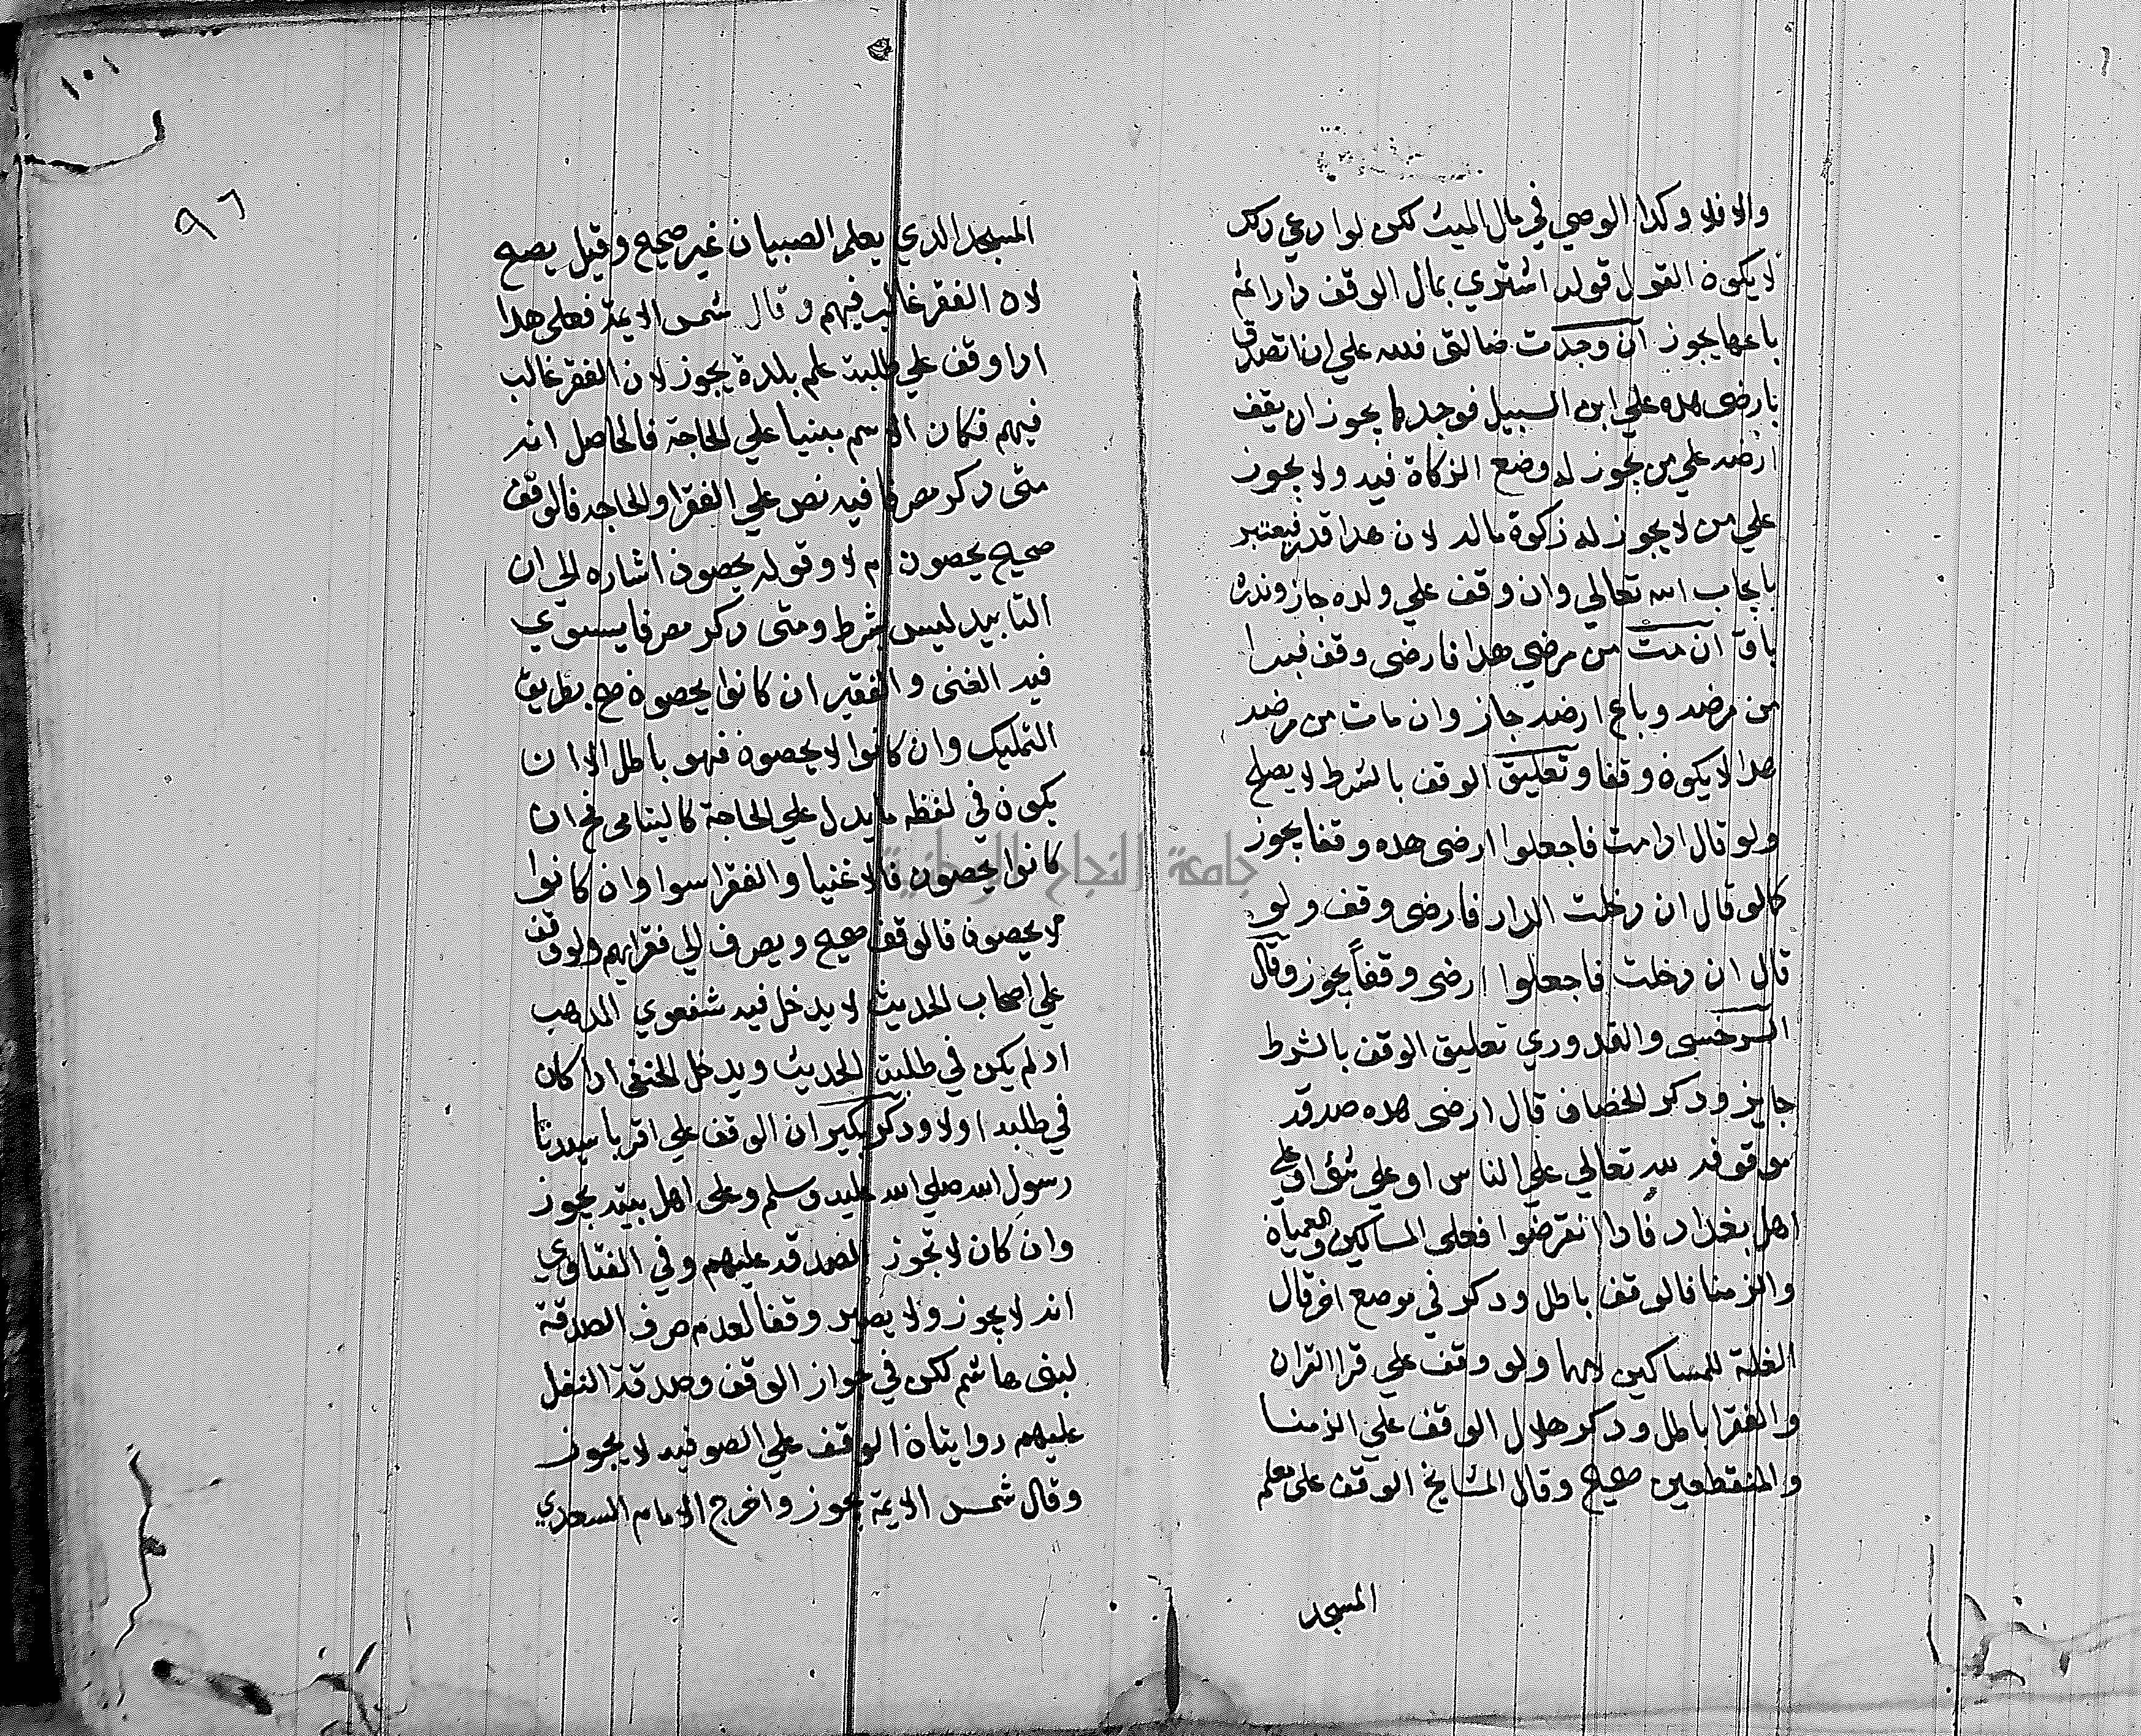 والا فلا وكدا الوصي في مال الميت لكن لو ادعي دلك
لا يكون القول قوله اشتري بمال الوقف دارا ثم
باعها يجوز ان وجدت ضالتي فلله علي ان اتصدق
بارضى هده علي ابن السبيل فوجدها يجوز ان يقف
ارضه علي من يجوز له وضع الزكاة فيه ولا يجوز
علي من لا يجوز له زكوة ماله لان هدا قدر فيعتبر
بايجاب الله تعالي وان وقف علي ولده جاز وندره
باق ان مت من مرضي هدا فارضى وقف فبرا
من مرضه وباع ارضه جاز وان مات من مرضه
هدا لا يكون وقفا وتعليق الوقف بالشرط لا يصلح
ولو قال ادا مت فاجعلوا ارضى هده وقفا يجوز
كالو قال ان دخلت الدار فارضى وقف ولو
قال ان دخلت فاجعلوا ارضى وقفاً يجوز وقال
السرخسى والقدوري تعليق الوقف بالشرط
جايز ودكر الخصاف قال ارضى هده صدقه
موقوفه لله تعالي علي الناس او علي اوعلي
اهل بغداد فادا انقرضوا فعلى المساكين
والزمنا فالوقف باطل ودكر في موضع اخر قال
الغلة للمساكين ولو وقف علي قرا القران
والفقرا باطل ودكر هلال الوقف علي الزمنا
والمنقطعين صحيح وقال المشايخ الوقف على معلم
المسجد
١٠١
٩٦
المسجد الدي يعلم الصبيان غير صحيح وقيل يصح
لان الفقر غالب فيهم وقال شمس الايمة فعلى هدا
ادا وقف علي طلبة علم بلدة يجوز لان الفقر غالب
فيهم فكان الاسم مبنيا علي الحاجة فالحاصل انه
متى دكر مصرفا فيه نص علي الفقرا والحاجه فالوقف
صحيح يحصون ام لا وقوله يحصون اشاره الى ان
التابيد ليس بشرط ومتى دكر مصرفا يستوي
فيه الغنى والفقير ان كانوا يحصون صح بطريق
التمليك وان كانوا لا يحصون فهو باطل الا ان
يكون في لفظه ما يدل علي الحاجة كاليتامى فح ان
كانوا يحصون فالاغنيا والفقرا سوا وان كانوا
لا يحصون فالوقف صحيح ويصرف الي فقرايهم ولو وقف
علي اصحاب الحديث لا يدخل فيه شفعوي المدهب
اد لم يكن في طلبة الحديث ويدخل الحنفى ادا كان
في طلبه اولا ودكر بكير ان الوقف علي اقربا سيدنا
رسول الله صلي الله عليه وسلم وعلى اهل بيته يجوز
وان كان لا تجوز الصدقه عليهم وفي الفتاوي
انه لا يجوز ولا يصير وقفاً لعدم صرف الصدقة
لبنى هاشم لكن في جواز الوقف وصدقة النفل
عليهم روايتان الوقف علي الصوفيه لا يجوز
وقال شمس الايمة يجوز واخرج الامام السعدي
جامعة النجاح الوطنية